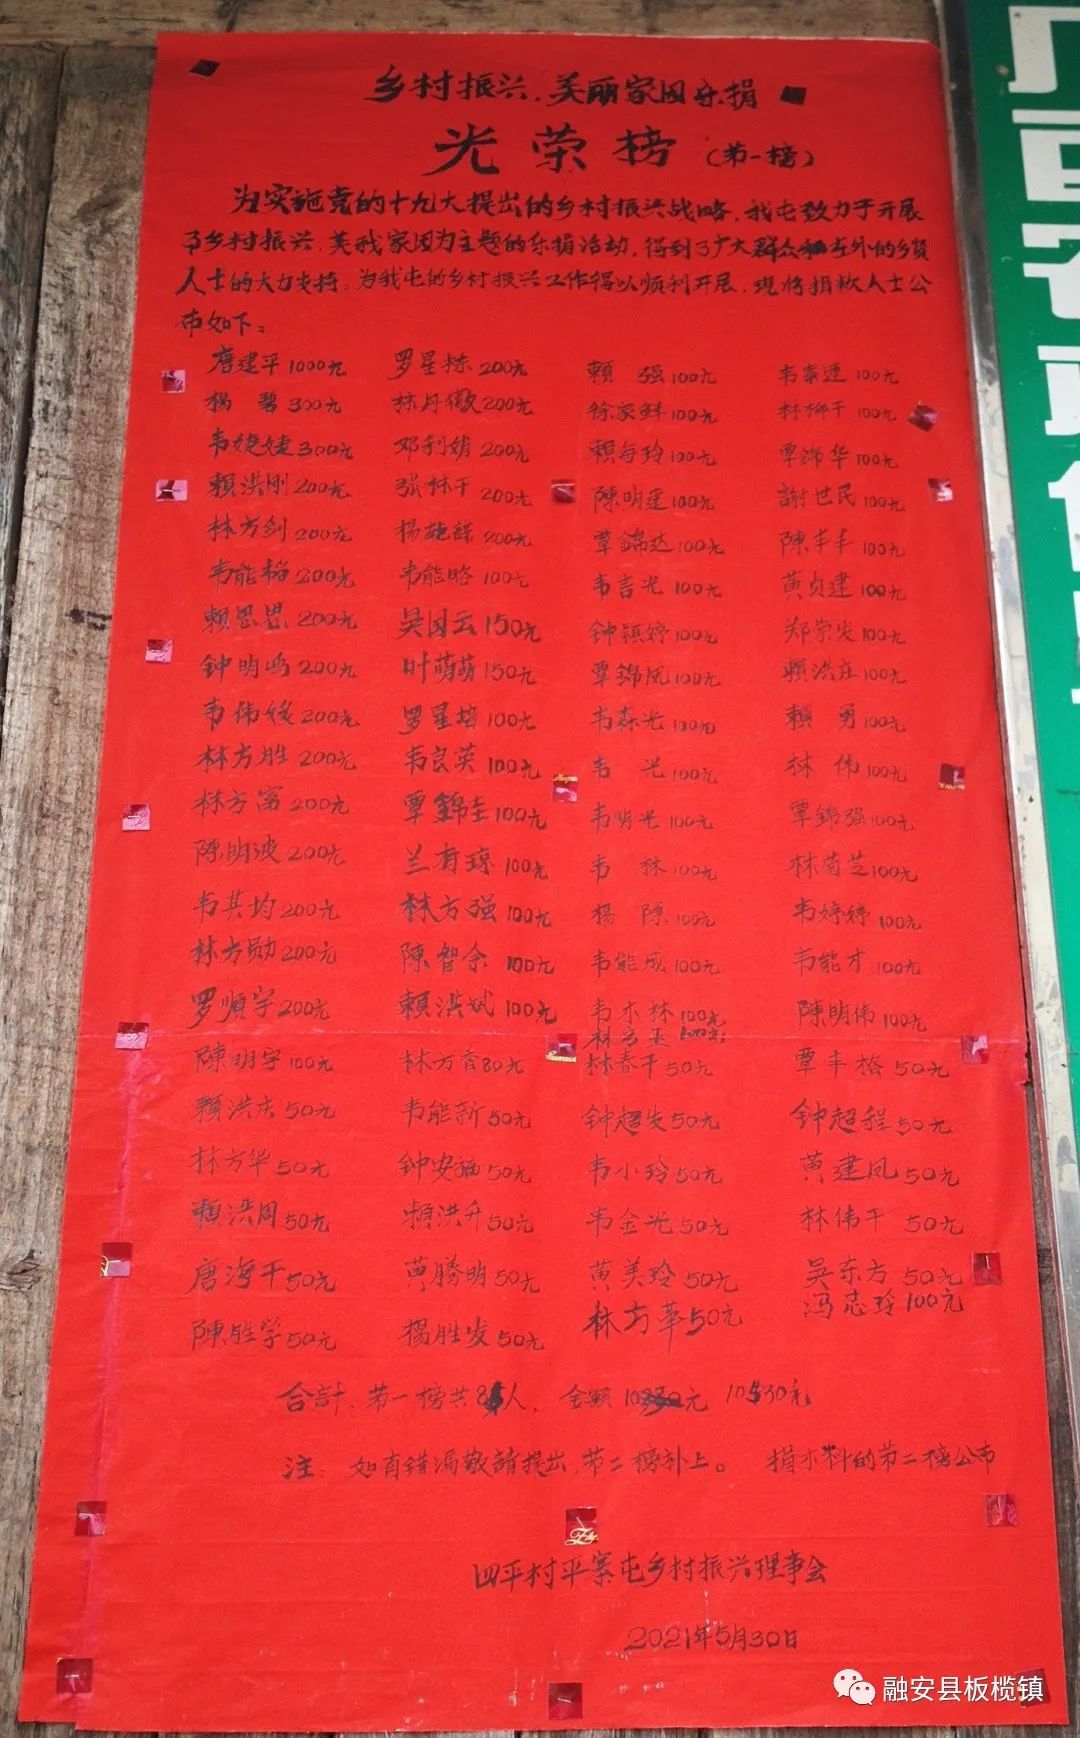 乡村振兴、美丽家园乐捐
光荣榜(第一榜)
为实施党的十九大提出的乡村振兴战略,我屯致力于开展
了乡村振兴,美我家园为主题的乐捐活动,得到了广大群众和在外的乡贤
人士的大力支持。为我屯的乡村振兴工作得以顺利开展,现将捐款人士公
布如下:
唐建平1000元 罗星栋200元 賴强100元 韦素速100元
楊碧300元 林丹微200元 徐家鲜100元 林柳千100元
韦婕婕300元 邓利娟200元 賴每玲100元 覃錦华100元
賴洪刚200元 张林千200元 陳明莲100元 謝世民100元
林方剑200元 楊 200元 覃錦达100元 陳丰丰100元
韦能韬200元 韦能略100元 韦吉光100元 黄贞建100元
賴思思200元 吴国云150元 钟颖婷100元 郑崇发100元
钟明鸣200元 叶萌萌150元 覃錦凤100元 賴洪庄100元
韦伟媛200元 罗星培100元 韦森光100元 賴勇100元
林方胜200元 韦良英100元 韦光100元 林伟100元
林方富200元 覃錦圭100元 韦明光100元 覃錦强100元
陳明波200元 兰有琼100元 韦林100元 林菊芝100元
韦其均200元 林方强100元 楊陳100元 韦婷婷100元
林方勋200元 陳智余100元 韦能成100元 韦能才100元
罗順宇200元 賴洪斌100元 韦木林100元 陳明伟100元
林 100元
陳明宇100元 林方香80元 林春千50元 覃丰格50元
賴洪庆50元 韦能新50元 钟超发50元 钟超程50元
林方华50元 钟安 50元 韦小玲50元 黄建凤50元
賴洪周50元 賴洪升50元 韦金光50元 林伟千50元
唐海千50元 黄腾明50元 黄美玲50元 吴东方50元
陳胜学50元 楊胜发50元 林方革50元 冯志玲100元
合計、第一榜共8 人,金额 元 10530元
注:如有错漏敬請提出,第二榜补上。 捐木料的第二榜公布
四平村平寨屯乡村振兴理事会
2021年5月30日
融安县板榄镇